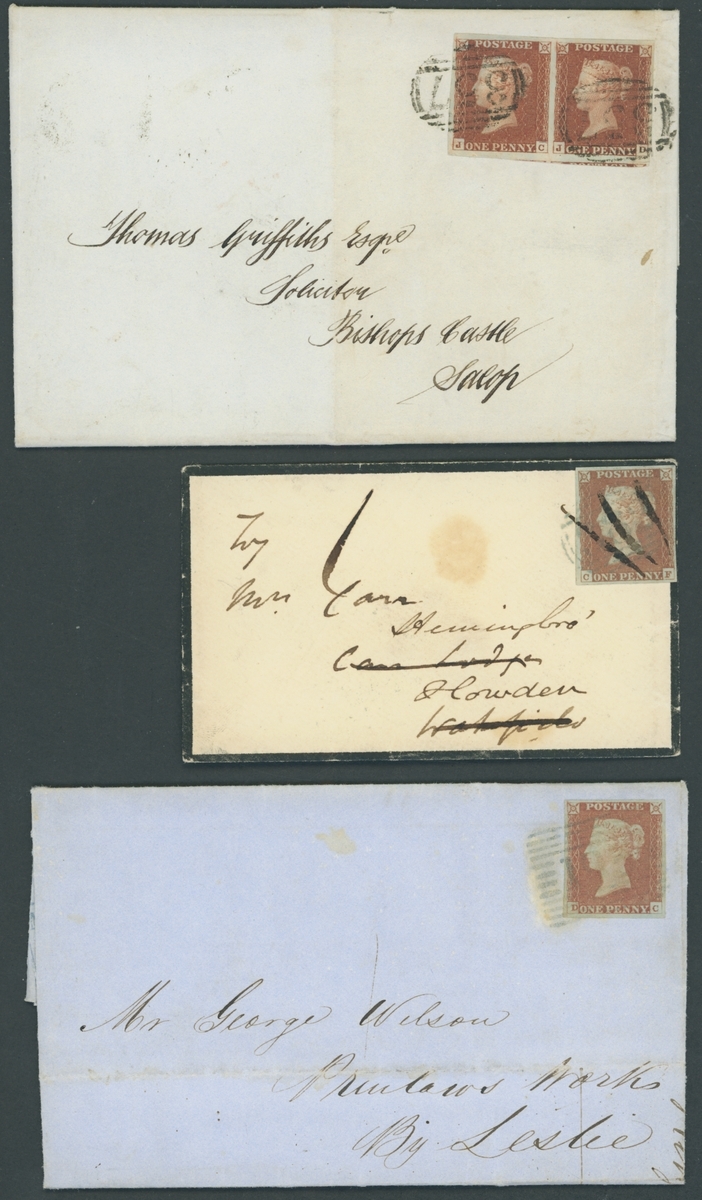 POSTAGE POSTAGE
J ONE PENNY C J ONE PENNY D
Thomas Griffiths Esqre
Solicitor
Bishops Castle
Salop
POSTAGE
C ONE PENNY F
1
Mrs Carr
Heminglbro'
Howden
POSTAGE
D ONE PENNY C
Mr George Wilson
Prinlaws Works
By Leslie